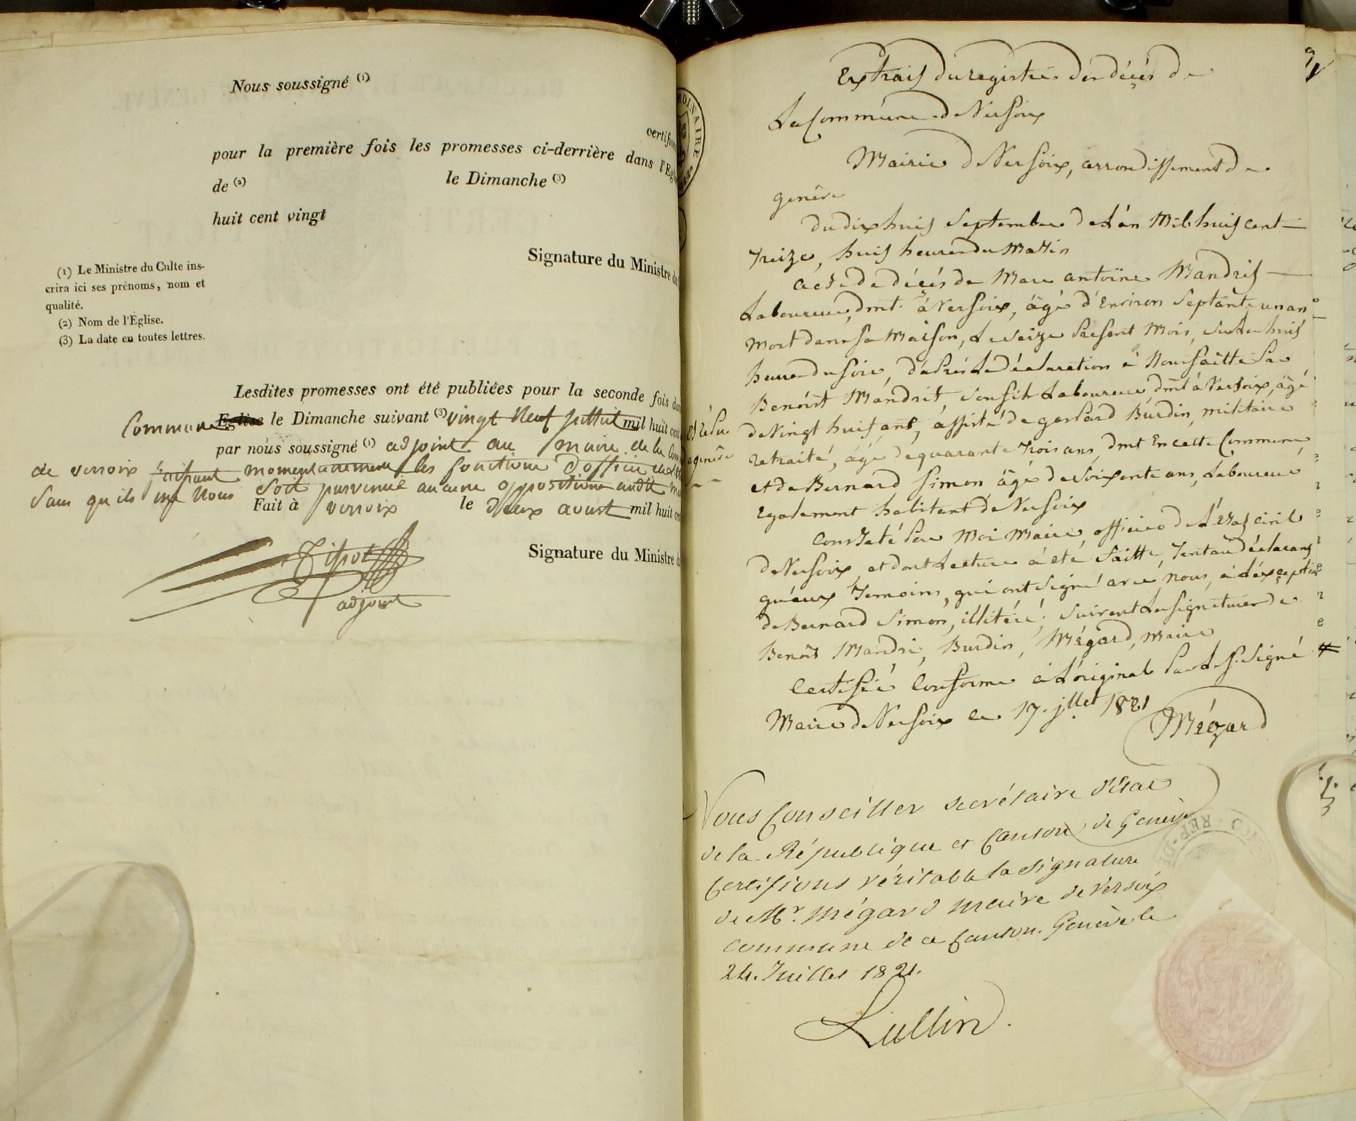 Nous soussigné (1)
certifions
pour la première fois les promesses ci-derrière dans l'Eglise
de (2) le Dimanche (3)
huit cent vingt
Signature du Ministre du
(1) Le Ministre du Culte ins-
crira ici ses prénoms, nom et
qualité.
(2) Nom de l'Église.
(3) La date en toutes lettres.
Lesdites promesses ont été publiées pour la seconde fois dans
Commune Eglise le Dimanche suivant (3) vingt Neuf juillet mil huit cent
par nous soussigné (1) adjoint au maire de la
de versoix faisant momentanement les fonctions d'officier
Sans qu'ils Nous soit parvenue aucune opposition
Fait à versoix le deux aoust mil huit cent
Signature du Ministre du
adjoint
Extrait du registre des décès de
La Commune de Versoix
Mairie de Versoix, arrondissement de
genève
du dix huit Septembre de L'an Mil huit cent
treize, huit heures du Matin
acte de décès de Marc antoine Mandrit
Laboureur, dmt. à Versoix, âgé d'Environ Septante un an
mort dans sa Maison, Le seize présent Mois, sur les huit
heures du soir, d'après La déclaration à Nous faitte par
Benoît Mandrit son fils Laboureur dmt à Versoix, âgé
de Vingt huit ans, assisté de gerard Burdin, militaire
retraité, âgé de quarante trois ans, dmt En cette Commune,
et de Bernard Simon âgé de soixante ans, Laboureur
Egalement habitant de Versoix
Constaté par Moi Maire officier de L'état civil
de Versoix et dont Lecture a été faitte, tant au déclarant
qu'aux temoins, qui ont signé avec nous, à L'exception
de Bernard Simon, illitéré; suivent Les signatures de
Benoît Mandri, Burdin, Mégard, maire
Certifié Conforme à L'original par Le S.signé
Maire de Versoix ce 17. jllet 1821
Mégard
Nous Conseiller secrétaire d'Etat
de la République et Canton de Genève
Certifions véritable la signature
de Mr. Mégard maire de Versoix
commune de ce Canton. Genève le
24. Juillet 1821.
Lullin.